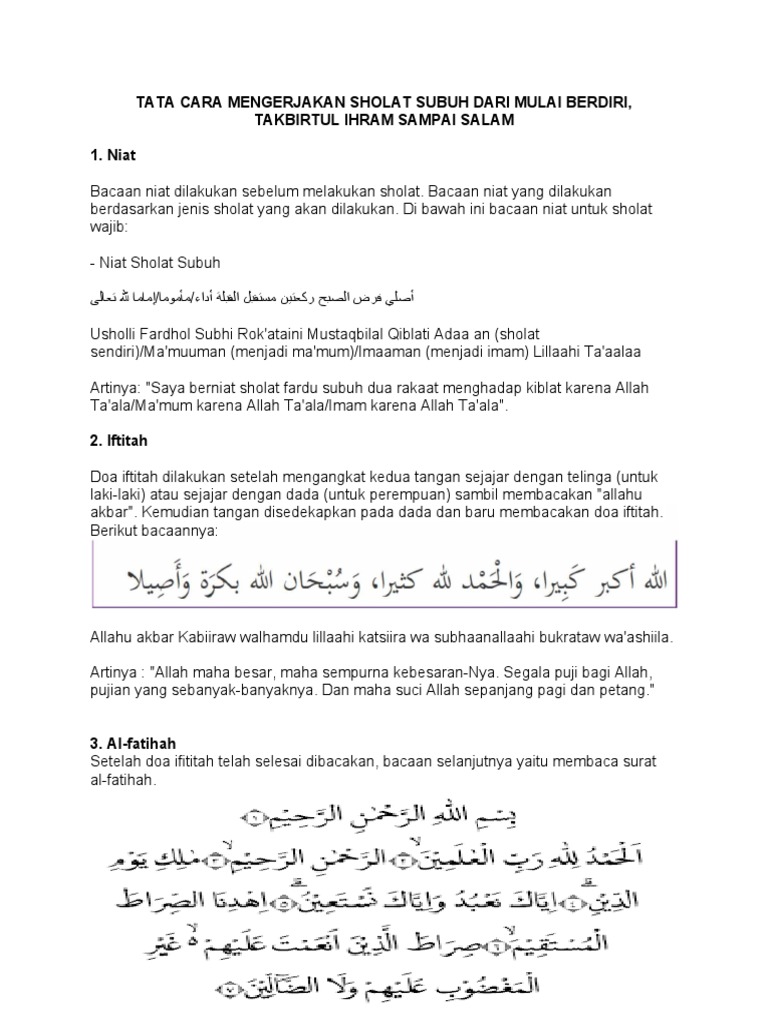 TATA CARA MENGERJAKAN SHOLAT SUBUH DARI MULAI BERDIRI,
TAKBIRTUL IHRAM SAMPAI SALAM
1. Niat
Bacaan niat dilakukan sebelum melakukan sholat. Bacaan niat yang dilakukan
berdasarkan jenis sholat yang akan dilakukan. Di bawah ini bacaan niat untuk sholat
wajib:
- Niat Sholat Subuh
أصلي فرض الصبح ركعتين مستقبل القبلة أداء/مأموما/إماما لله تعالى
Usholli Fardhol Subhi Rok'ataini Mustaqbilal Qiblati Adaa an (sholat
sendiri)/Ma'muuman (menjadi ma'mum)/Imaaman (menjadi imam) Lillaahi Ta'aalaa
Artinya: "Saya berniat sholat fardu subuh dua rakaat menghadap kiblat karena Allah
Ta'ala/Ma'mum karena Allah Ta'ala/Imam karena Allah Ta'ala".
2. Iftitah
Doa iftitah dilakukan setelah mengangkat kedua tangan sejajar dengan telinga (untuk
laki-laki) atau sejajar dengan dada (untuk perempuan) sambil membacakan "allahu
akbar". Kemudian tangan disedekapkan pada dada dan baru membacakan doa iftitah.
Berikut bacaannya:
الله أكبر كَبِيرا، وَالْحَمْد لله كثيرا، وَسُبْحَان الله بكرَة وَأَصِيلا
Allahu akbar Kabiiraw walhamdu lillaahi katsiira wa subhaanallaahi bukrataw wa'ashiila.
Artinya : "Allah maha besar, maha sempurna kebesaran-Nya. Segala puji bagi Allah,
pujian yang sebanyak-banyaknya. Dan maha suci Allah sepanjang pagi dan petang."
3. Al-fatihah
Setelah doa ifititah telah selesai dibacakan, bacaan selanjutnya yaitu membaca surat
al-fatihah.
بِسْمِ اللّٰهِ الرَّحْمٰنِ الرَّحِيْمِ ﴿١﴾
اَلْحَمْدُ لِلّٰهِ رَبِّ الْعٰلَمِيْنَۙ ﴿٢﴾ الرَّحْمٰنِ الرَّحِيْمِۙ ﴿٣﴾ مٰلِكِ يَوْمِ
الدِّيْنِۗ ﴿٤﴾ اِيَّاكَ نَعْبُدُ وَاِيَّاكَ نَسْتَعِيْنُۗ ﴿٥﴾ اِهْدِنَا الصِّرَاطَ
الْمُسْتَقِيْمَۙ ﴿٦﴾ صِرَاطَ الَّذِيْنَ اَنْعَمْتَ عَلَيْهِمْ ەۙ غَيْرِ
الْمَغْضُوْبِ عَلَيْهِمْ وَلَا الضَّاۤلِّيْنَ ﴿٧﴾